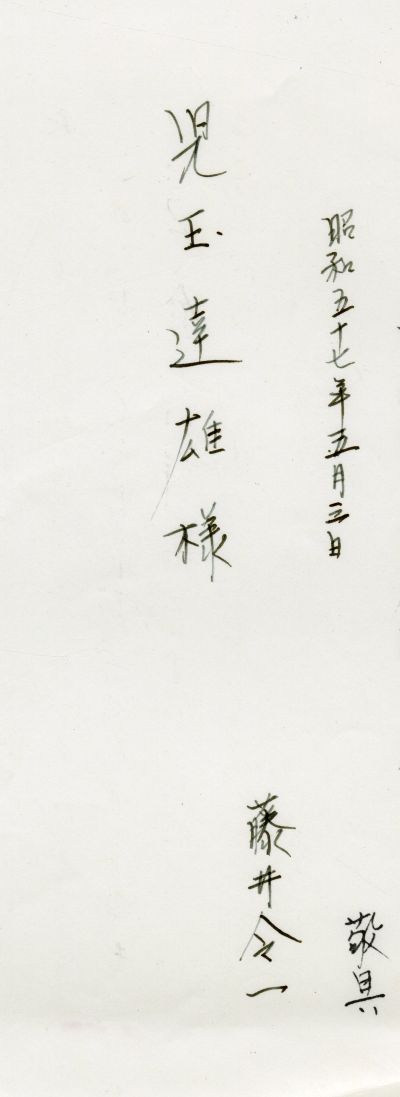 敬具
昭和五十七年五月三日
藤井令一
児玉達雄様